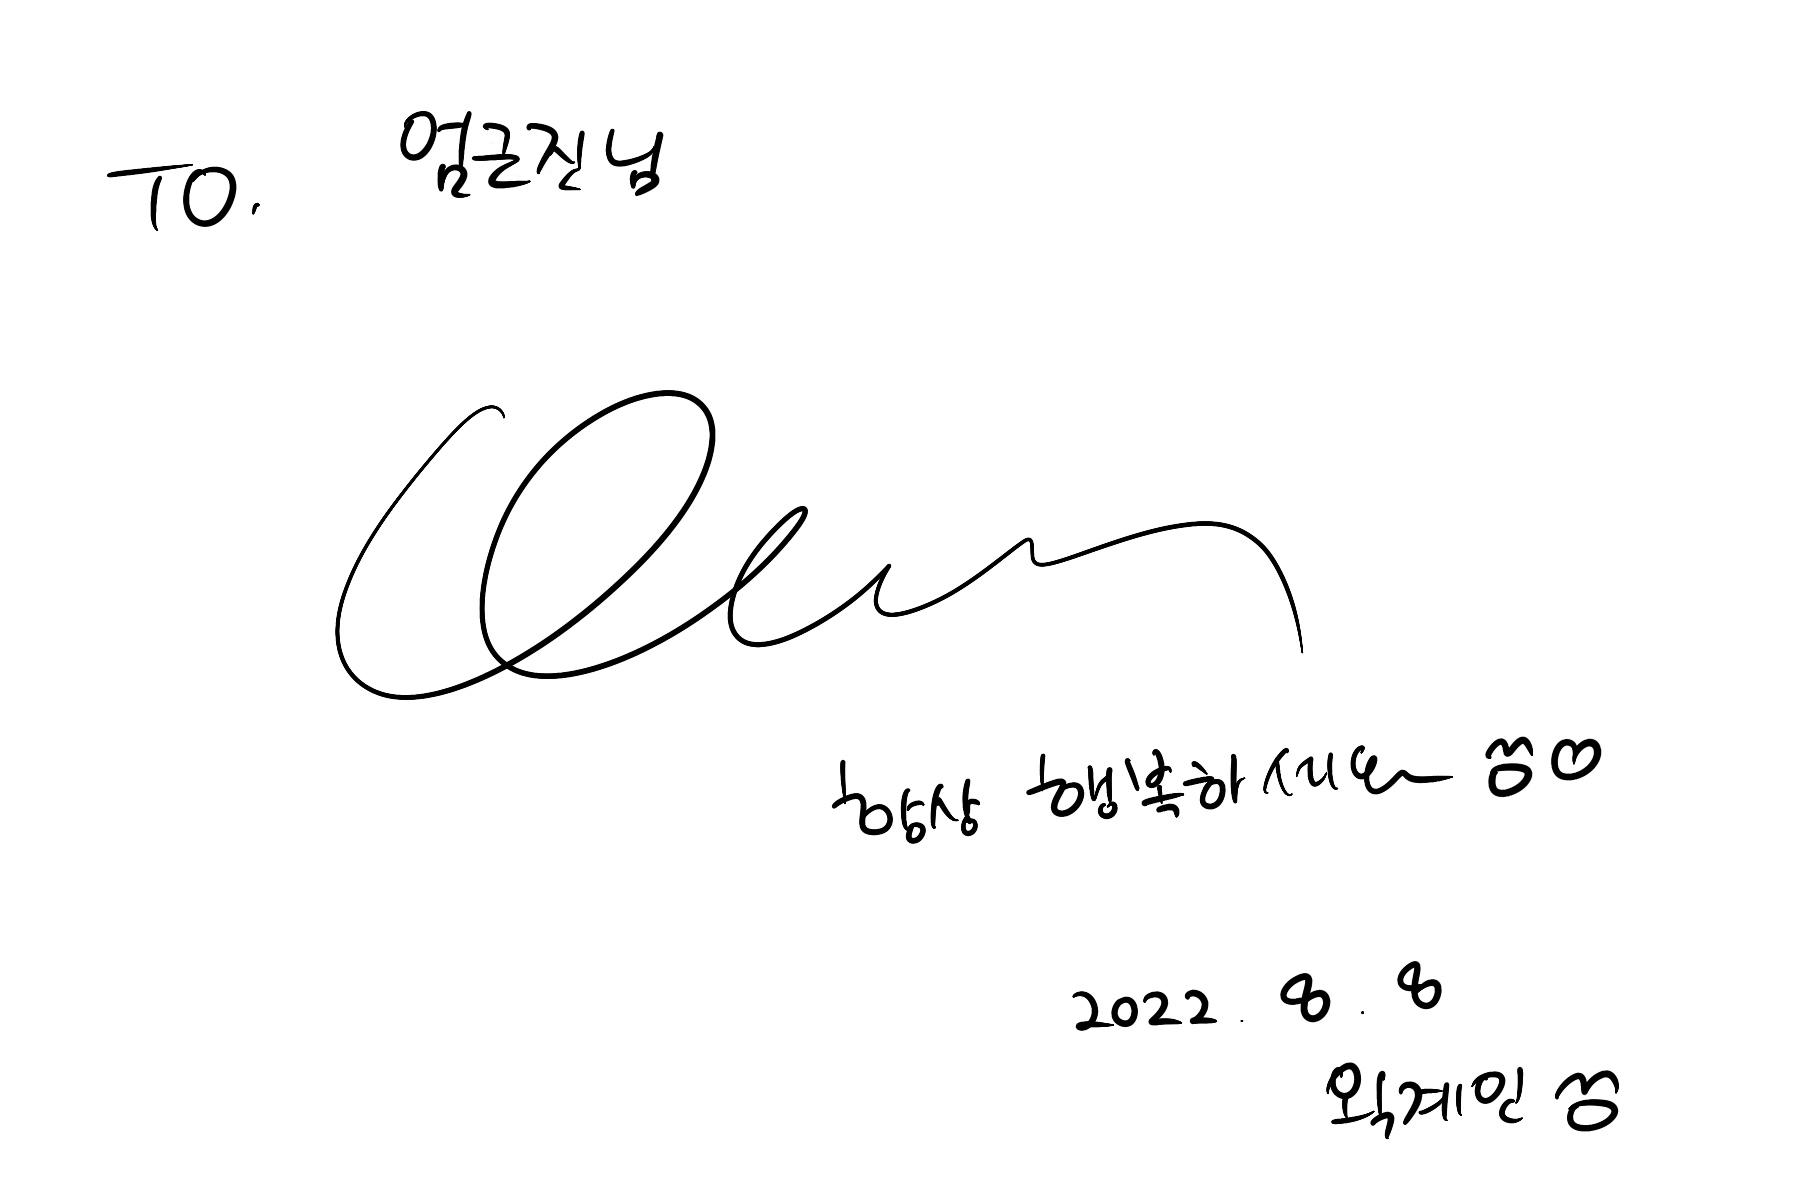 TO. 엄근진님
항상 행복하세요~ ♡
2022. 8. 8
왁계인